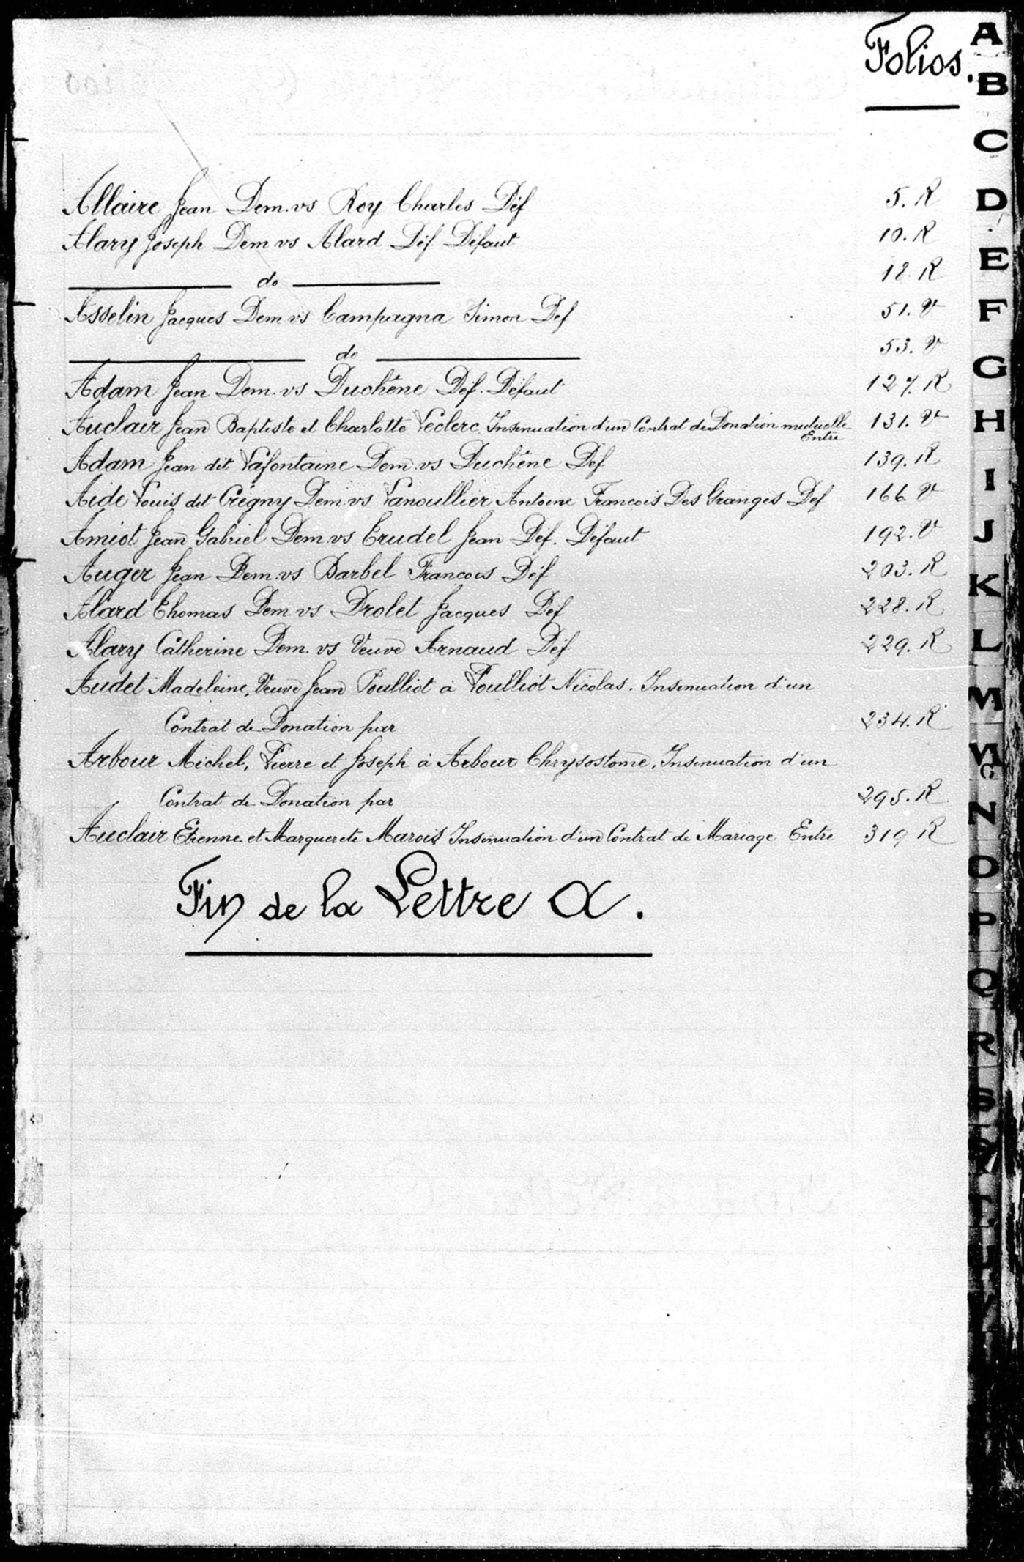 Folios.
Allaire Jean Dem. vs Roy Charles Déf 5. R
Alary Joseph Dem vs Alard Déf Défaut 10. R
do 18 R
Asselin Jacques Dem vs Campagna Simon Déf 51. V
do 53. V
Adam Jean Dem. vs Duchêne Déf. Défaut 127. R
Auclair Jean Baptiste et Charlotte Leclerc, Insinuation d'un Contrat de Donation mutuelle Entre 131. V
Adam Jean dit Lafontaine Dem vs Duchêne Déf 139. R
Aide Louis dit Créqny Dem vs Lanoullier Antoine Francois Des Granges Déf 166 V
Amiot Jean Gabriel Dem. vs Trudel Jean Déf. Défaut 192. V
Auger Jean Dem. vs Barbel Francois Déf 203. R
Alard Thomas Dem vs Drolet Jacques Déf 228. R
Alary Catherine Dem. vs Veuve Arnaud Déf 229. R
Audet Madeleine, Veuve Jean Poulliot à Poulliot Nicolas, Insinuation d'un
Contrat de Donation par 234. R
Arbour Michel, Pierre et Joseph à Arbour Chrysostome, Insinuation d'un
Contrat de Donation par 295. R
Auclair Etienne et Marguerete Marois Insinuation d'un Contrat de Mariage Entre 319 R
Fin de la Lettre A.
A
B
C
D
E
F
G
H
I
J
K
L
M
Mc
N
O
P
Q
R
S
T
U